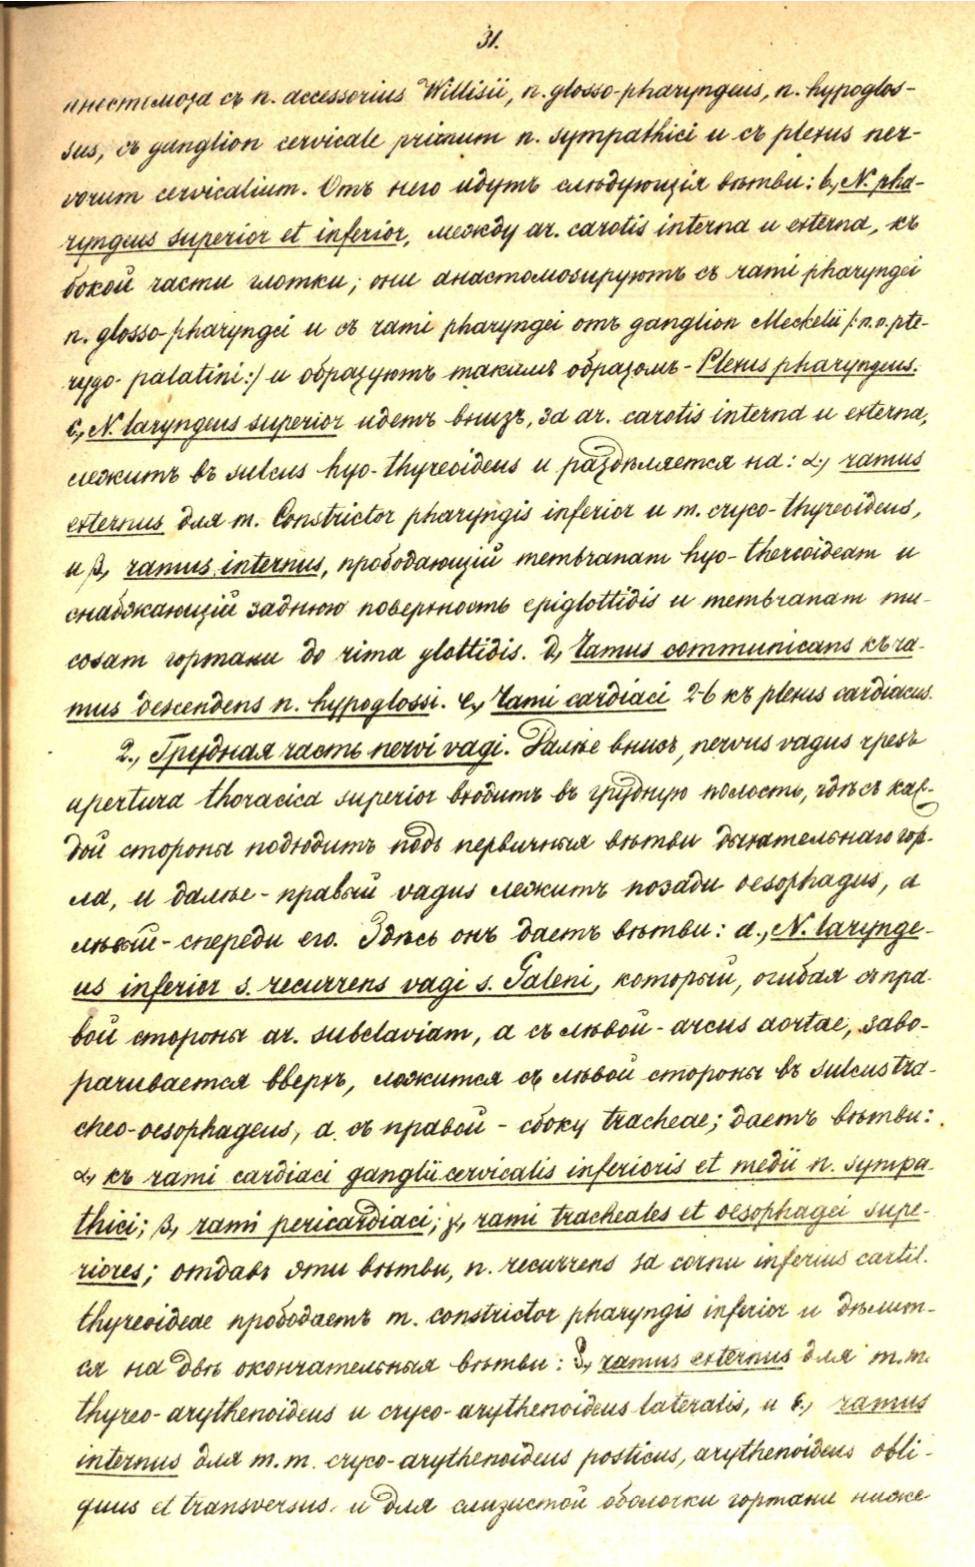 31.
анестомоза съ n. accessorius Willisii, n. glosso-pharyngeus, n. hypoglos-
sus, съ ganglion cervicale primum n. sympathici и съ plexus ner-
vorum cervicalium. Отъ него идутъ слѣдующія вѣтви: b, N. pha-
ryngeus superior et inferior, между ar. carotis interna и externa, къ
бокой части глотки; они анастомозируютъ съ rami pharyngei
n. glosso-pharyngei и съ rami pharyngei отъ ganglion Meckelii /: n. n. pte-
rygo-palatini:/ и образуютъ такимъ образомъ - Plexus pharyngeus.
c, N. laryngeus superior идетъ внизъ, за ar. carotis interna и externa,
лежитъ въ sulcus hyo-thyreoideus и раздѣляется на: α, ramus
externus для m. Constrictor pharyngis inferior и m. cryco-thyreoideus,
и β, ramus internus, прободающій membranam hyo-thereoideam и
снабжающій заднюю поверхность epiglottidis и membranam mu-
cosam гортани до rima glottidis. d, ramus communicans къ ra-
mus descendens n. hypoglossi. e, rami cardiaci 2-6 къ plexus cardiacus.
2., Грудная часть nervi vagi. Далѣе внизъ, nervus vagus чрезъ
apertura thoracica superior входитъ въ грудную полость, гдѣ съ каж-
дой стороны подходитъ подъ первичныя вѣтви дыхательнаго гор-
ла, и далѣе - правый vagus лежитъ позади oesophagus, а
лѣвый - спереди его. Здѣсь онъ даетъ вѣтви: a., N. larynge-
us inferior s. recurrens vagi s. Galeni, который, огибая съ пра-
вой стороны ar. subclaviam, а съ лѣвой - arcus aortae, заво-
рачивается вверхъ, ложится съ лѣвой стороны въ sulcus tra-
cheo-oesophageus, а съ правой - сбоку tracheae; даетъ вѣтви:
α, къ rami cardiaci ganglii cervicalis inferioris et medii n. sympa-
thici; β, rami pericardiaci; γ, rami tracheales et oesophagei supe-
riores; отдавъ эти вѣтви, n. recurrens за cornu inferius cartil.
thyreoideae прободаетъ m. constrictor pharyngis inferior и дѣлит-
ся на двѣ окончательныя вѣтви: δ, ramus externus для m.m.
thyreo-arythenoideus и cryco-arythenoideus lateralis, и ε, ramus
internus для m.m. cryco-arythenoideus posticus, arythenoideus obli-
quus et transversus и для слизистой оболочки гортани ниже